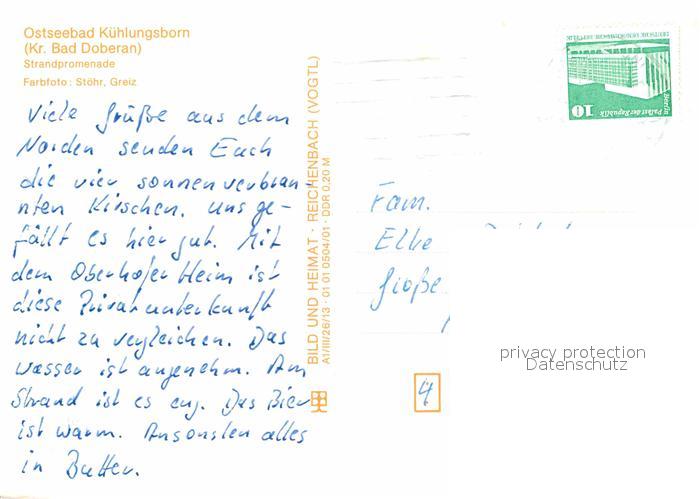 Ostseebad Kühlungsborn
(Kr. Bad Doberan)
Strandpromenade
Farbfoto: Stöhr, Greiz
Viele Grüße aus dem
Norden senden Euch
die vier sonnenverbran-
nten Kirschen. Uns ge-
fällt es hier gut. Mit
dem Oberhofer Heim ist
diese Privatunterkunft
nicht zu vergleichen. Das
Wasser ist angenehm. Am
Strand ist es eng. Das Bier
ist warm. Ansonsten alles
in Butter.
BILD UND HEIMAT · REICHENBACH (VOGTL)
A1/III/26/13 · 01 01 0504/01 · DDR 0,20 M
DEUTSCHE DEMOKRATISCHE REPUBLIK
Berlin, Palast der Republik
10
Fam.
Elke
Große
4
privacy protection
Datenschutz